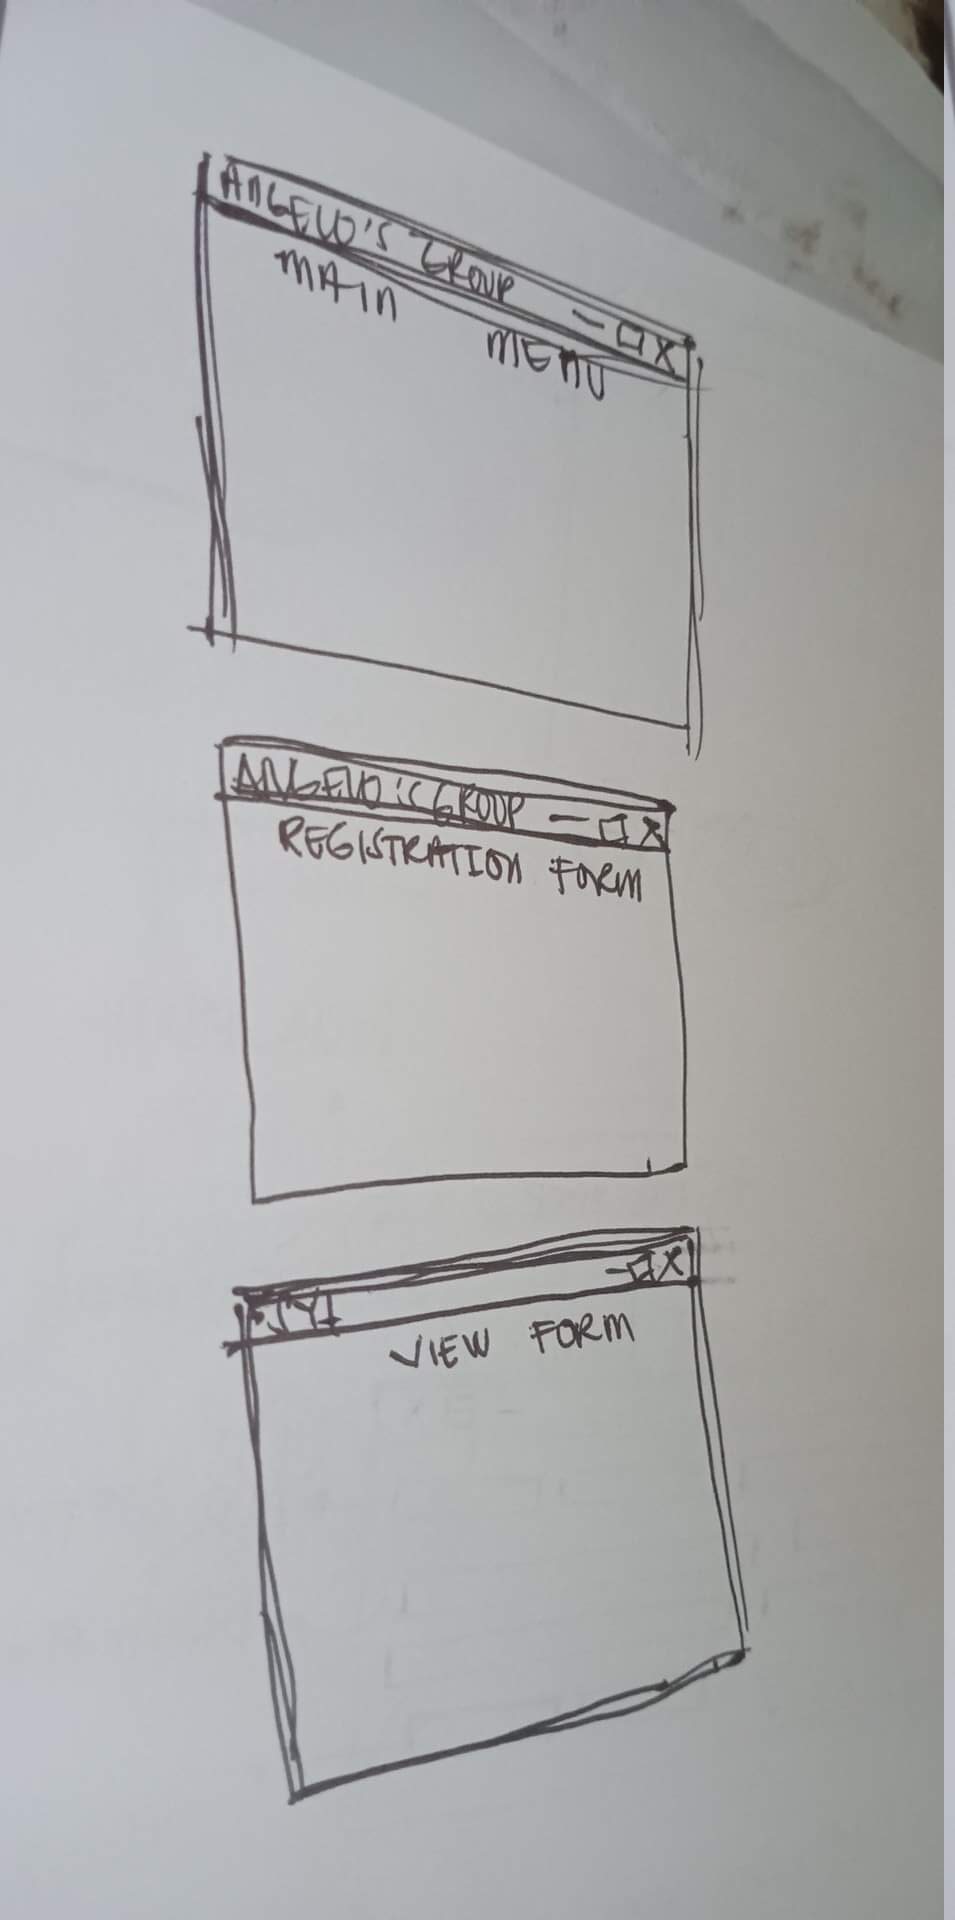 ANGELO'S GROUP
MAIN MENU
ANGELO'S GROUP
REGISTRATION FORM
VIEW FORM